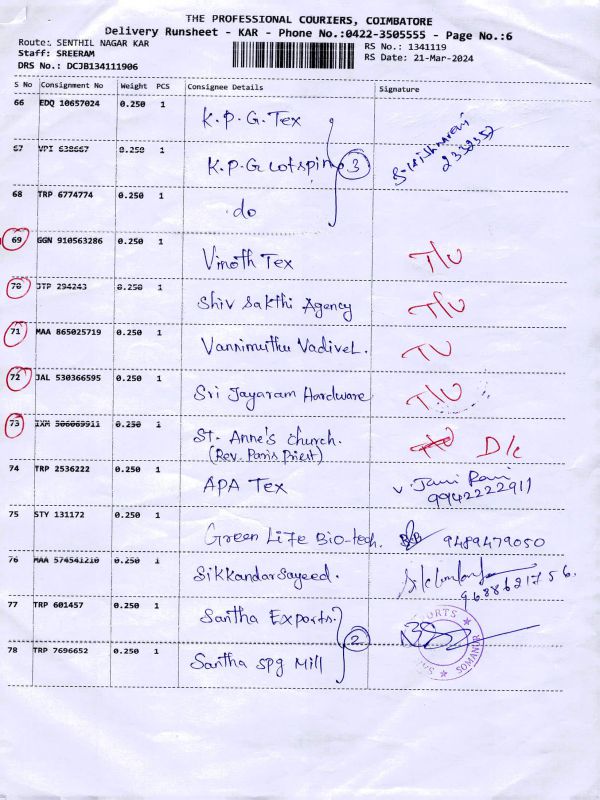 THE PROFESSIONAL COURIERS, COIMBATORE
Delivery Runsheet - KAR - Phone No.:0422-3505555 - Page No.:6
Route: SENTHIL NAGAR KAR
RS No.: 1341119
Staff: SREERAM
RS Date: 21-Mar-2024
DRS No.: DCJB134111906
S No Consignment No Weight PCS Consignee Details Signature
66 EDQ 10657024 0.250 1 K.P.G.Tex
67 VPI 638667 0.250 1 K.P.G Cotspin 3 2332352
68 TRP 6774774 0.250 1 do
69 GGN 910563286 0.250 1 Vinoth Tex T/U
70 JTP 294243 0.250 1 Shiv Sakthi Agency T/U
71 MAA 865025719 0.250 1 Vannimuthu Vadivel. TU
72 JAL 530366595 0.250 1 Sri Jayaram Hardware T/U
73 IXM 506069911 0.250 1 St. Anne's Church. D/c
(Rev. Paris Priest)
74 TRP 2536222 0.250 1 APA Tex V. Jani Rani
9942222911
75 STY 131172 0.250 1 Green Life Bio-tech. 9489479050
76 MAA 574541210 0.250 1 Sikkandar Sayeed. 9688621756.
77 TRP 601457 0.250 1 Santha Exports. 2
78 TRP 7696652 0.250 1 Santha Spg Mill
SOMANUR